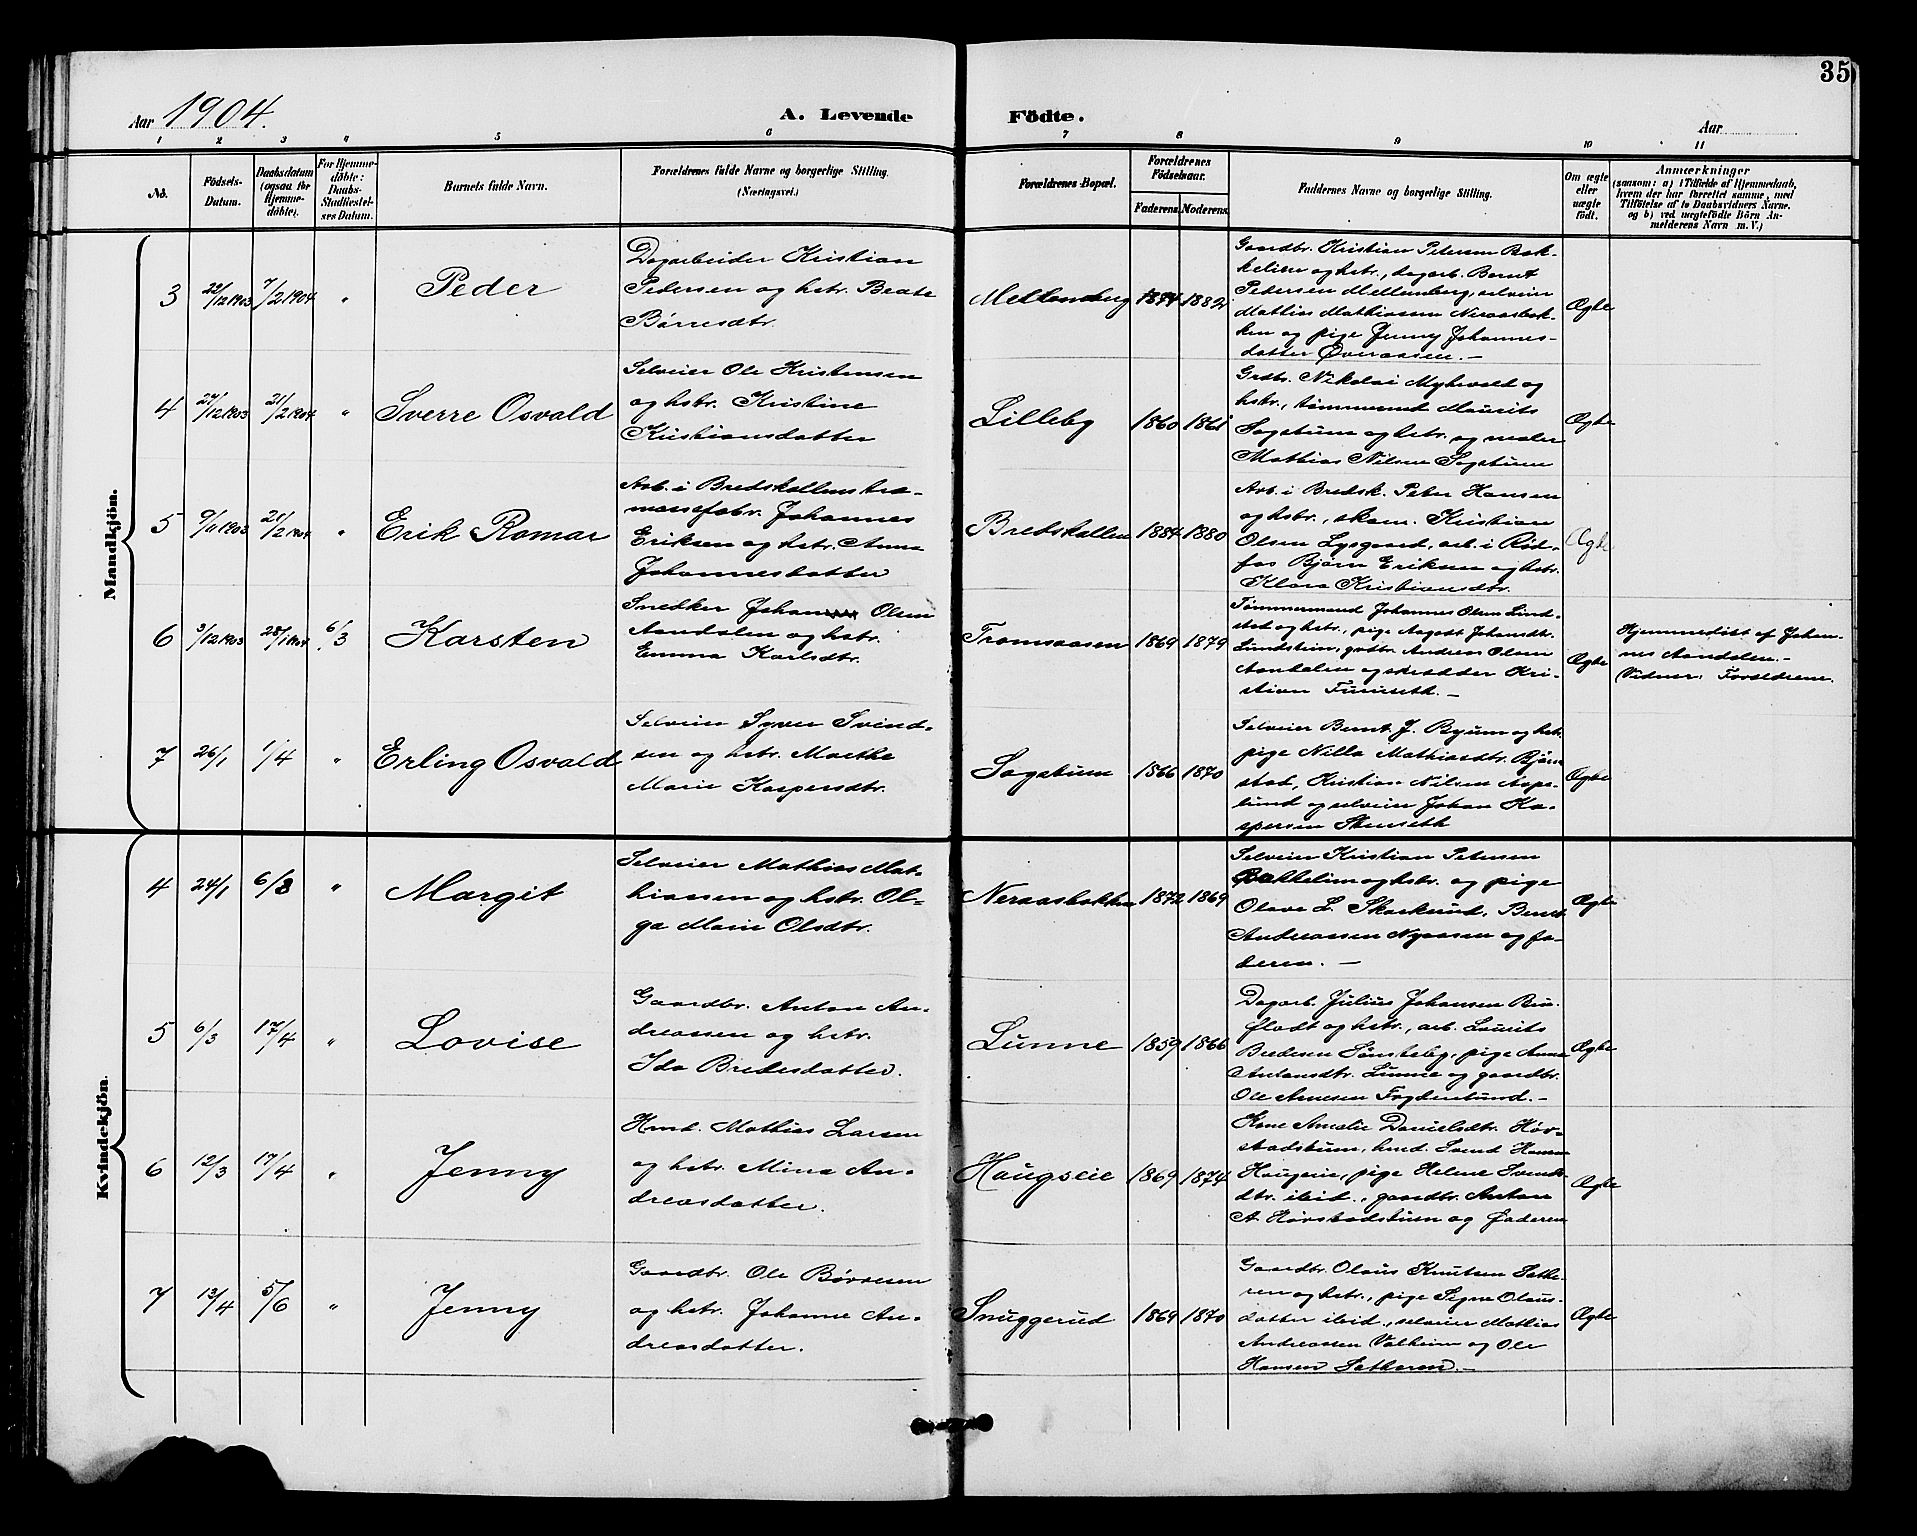 35
Aar 1904.
A. Levende Födte.
Aar
1 2 3 4 5 6 7 8 9 10 11
No.
Födsels-
Datum.
Daabsdatum
(ogsaa for
Hjemme-
döbte).
For Hjemme-
döbte:
Daabs-
Stadfæstel-
ses Datum.
Barnets fulde Navn.
Forældrenes fulde Navne og borgerlige Stilling.
(Næringsvei.)
Forældrenes Bopæl.
Forældrenes
Födselsaar.
Faderens. Moderens.
Faddernes Navne og borgerlige Stilling.
Om ægte
eller
uægte
født.
Anmærkninger
(saasom: a) i Tilfælde af Hjemmedaab,
hvem der har forrettet samme, med
Tilföielse af to Daabsvidners Navne.
og b) ved uægtefödte Börn An-
melderens Navn m. V.)
Mandkjön.
3 29/12 1903 7/2 1904 " Peder
Dagarbeider Kristian
Pedersen og hstr. Beate
Børresdtr.
Mellemberg 1884 1882
Gaardbr. Kristian Petersen Bak-
kelien og hstr., dagarb. Bernt
Pedersen Mellemberg, selveier
Mathias Mathiassen Neraasbak-
ken og pige Jenny Johannes-
datter Øveraasen.—
Ægte
4 27/12 1903 21/2 1904 " Sverre Osvald
Selveier Ole Kristensen
og hstr. Kristine
Kristiansdatter
Lilleby 1860 1861
Grdbr. Nikolai Myhrvold og
hstr., tømmermd Maurits
Sagstuen og hstr. og maler
Mathias Nilsen Sagstuen
Ægte
5 9/11 1903 21/2 1904 " Erik Romar
Arb. i Bredskallens træ-
massefabr. Johannes
Eriksen og hstr. Anna
Johannesdatter
Bredskallen 1884 1880
Arb. i Bredsk. Peter Hansen
og hstr., skom. Kristian
Olsen Lysgaard, arb. i Rød-
fos Bjørn Eriksen og hstr.
Klara Kristiansdtr.
Ægte
6 3/12 1903 28/1 1904 6/3 Karsten
Snedker Johan Olsen
Aandalen og hstr.
Emma Karlsdtr.
Tromsaasen 1869 1879
Tømmermand Johannes Olsen Lund-
stad og hstr., pige Aagodt Johansdtr.
Lundstein, gattr. Andreas Olsen
Aandalen og skrædder Kri-
stian Furuseth.—
Ægte
Hjemmedøbt af Johan-
nes Aandalen.—
Vidner: Forældrene.
7 26/1 1/4 " Erling Osvald
Selveier Syver Svend-
sen og hstr. Marthe
Marie Kaspersdtr.
Sagstuen 1866 1870
Selveier Bernt J. Byum og hstr.
pige Nilla Mathiasdtr. Bjørn
stad, Kristian Nilsen Aspe-
lund og selveier Johan Ka-
spersen Stenseth
Ægte
Kvindekjön.
4 24/1 6/3 " Margit
Selveier Mathias Mat-
hiassen og hstr. Ol-
ga Marie Olsdtr.
Neraasbakken 1872 1869
Selveier Kristian Petersen
Bakkelien og hstr. og pige
Olave L. Skarlund, Bernt
Andreassen Nyaasen og fa-
deren.—
Ægte
5 6/3 17/4 " Lovise
Gaardbr. Anton An-
dreassen og hstr.
Ida Bredesdatter.
Lunne 1859 1866
Dagarb. Julius Johansen Bru-
fladt og hstr., arb. Laurits
Bredesen Sønsteby, pige Anna
Antonsdtr. Lunne og gaardbr.
Ole Arnesen Frydenlund.—
Ægte
6 12/3 17/4 " Jenny
Hmd. Mathias Larsen
og hstr. Mina An-
dreasdatter.
Haugseie 1869 1874
Kone Amalie Danielsdtr. Høv-
stadstuen, hmd. Svend Hansen
Haugseie, pige Helene Svends-
dtr. ibid., gaardbr. Anton
A. Hørstadstuen og Faderen
Ægte
7 13/4 5/6 " Jenny
Gaardbr. Ole Børresen
og hstr. Johanne An-
dreasdatter.
Snuggerud 1869 1870
Gaardbr. Olaus Knutsen Sathe-
ren og hstr., pige Signe Olaus-
datter ibid., selveier Mathias
Andreassen Valheim og Ole
Hansen Satheren.—
Ægte